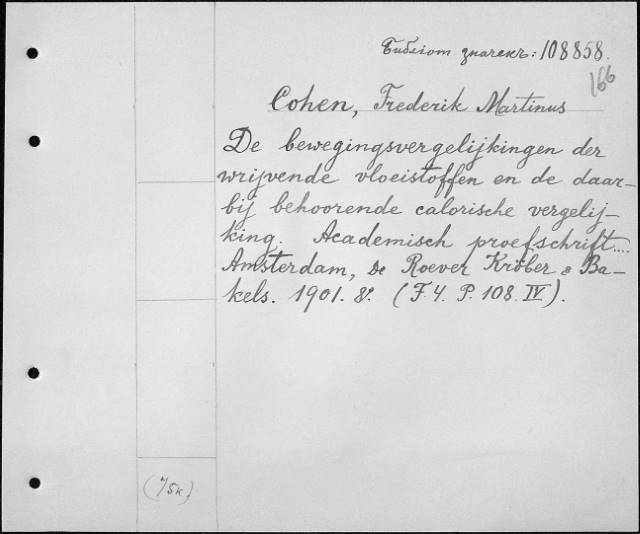 Библіот. значекъ: 108858.
166
Cohen, Frederik Martinus
De bewegingsvergelijkingen der
wrijvende vloeistoffen en de daar-
bij behoorende calorische vergelij-
king. Academisch proefschrift....
Amsterdam, de Roever Kröber & Ba-
kels. 1901. 8º. (F. 4. P. 108. IV).
(75к)